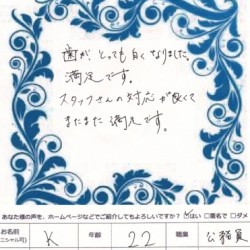 歯が、とっても白くなりました。
満足です。
スタッフさんの対応が良くて
またまた満足です。
あなた様の声を、ホームページなどでご紹介してもよろしいですか？ はい □匿名で □ダメ
お名前 K 年齢 22 職業 公務員
ニシャル可)